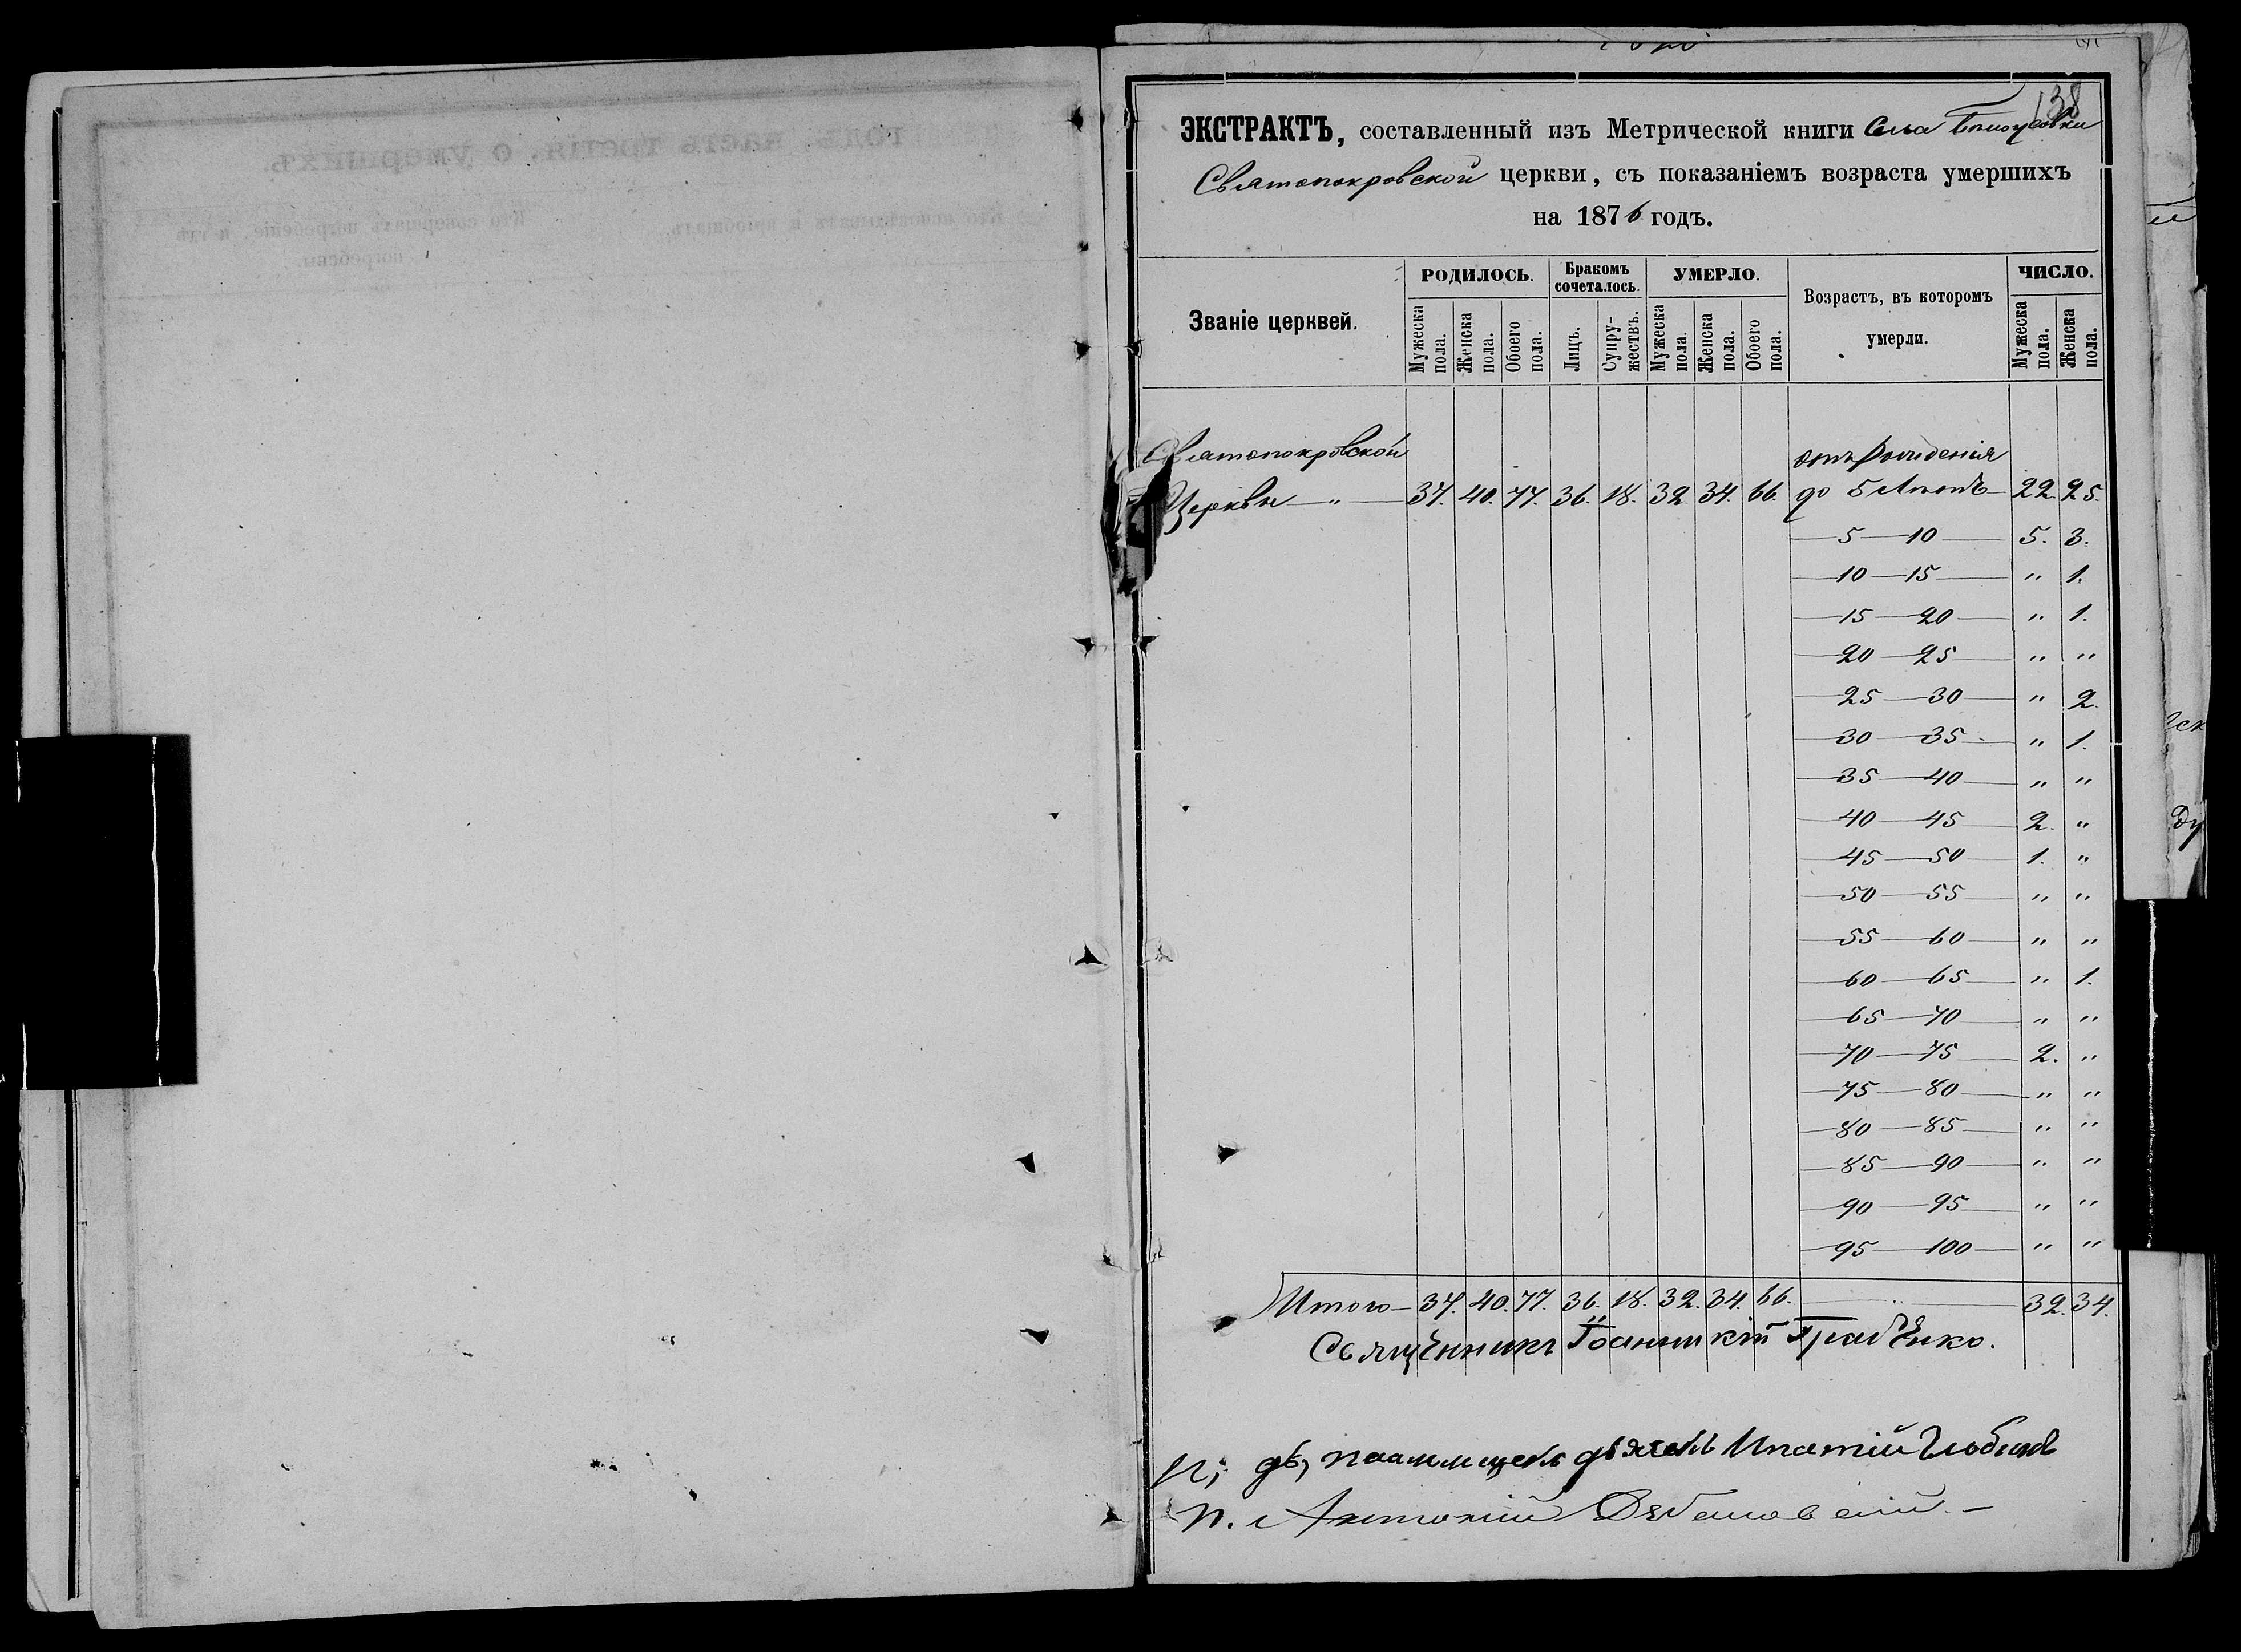 138
ЭКСТРАКТЪ, составленный изъ Метрической книги Села
Святопокровской церкви, съ показаніемъ возраста умершихъ
на 1876 годъ.
Званіе церквей.
РОДИЛОСЬ.
Бракомъ сочеталось.
УМЕРЛО.
Возрастъ, въ которомъ умерли.
ЧИСЛО.
Мужеска пола. Женска пола. Обоего пола. Лицъ. Супружествъ. Мужеска пола. Женска пола. Обоего пола. Мужеска пола. Женска пола.
Святопокровской отъ рожденія
Церкви — „ — 37. 40. 77. 36. 18. 32 34. 66. до 5 Лѣтъ — 22. 25.
— 5 — 10 — 5. 3.
— 10 — 15 — „ 1.
— 15 — 20 — „ 1.
— 20 — 25 — „ „
— 25 — 30 — „ 2.
— 30 — 35 — „ 1.
— 35 — 40 — „ „
— 40 — 45 — 2. „
— 45 — 50 — 1. „
— 50 — 55 — „ „
— 55 — 60 — „ „
— 60 — 65 — „ 1.
— 65 — 70 — „ „
— 70 — 75 — 2. „
— 75 — 80 — „ „
— 80 — 85 — „ „
— 85 — 90 — „ „
— 90 — 95 — „ „
— 95 — 100 — „ „
Итого — 37. 40. 77. 36. 18. 32. 34. 66. — „ — 32. 34.
Священникъ Іоанникій
Ипатій
п. Антоній